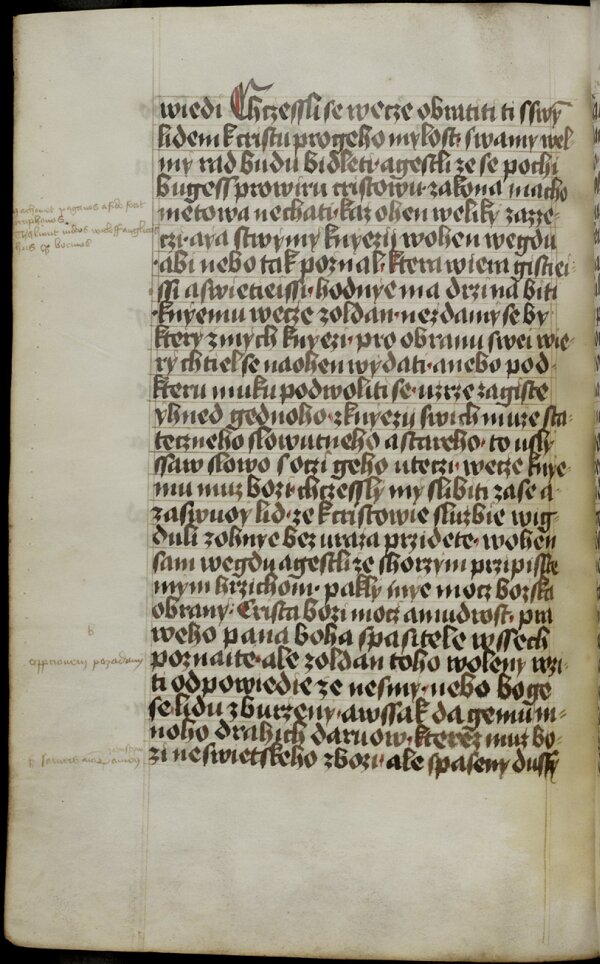 wiedi Chczessli se wecze obratiti ti s swy̅
lidem k cristu pro geho mylost· s wamy wel-
my rad budu bidleti· a gestli ze se pochi
bugess pro wiru cristowu· zakona macho
metowa nechati· kaz ohen weliky zazze-
czi· a ya s twymy knyezij w ohen wegdu
abi nebo tak poznal· ktera wiera gistiei-
ssi a swietieissi· hodnye ma drzina biti
knyemu wecze zoldan· nezdamy se by
ktery z mych knyezi· pro obranu swei wie-
ry chtiel se na ohen wydati· anebo pod-
kteru muku podwoliti se· uzrze zagiste
yhned gednoho z knyezij swich muze sta-
teczneho slowutneho a stareho· to usly
ssaw slowo s oczi geho uteczi· wecze knye-
mu muz bozi· chczessly my slibiti za se a
za swuoy lid· ze k cristowie sluzbie wig-
duli z ohnye bez uraza przidete· w ohen
sam wegdu a gestli ze shorzym przipisste
mym hrzichom· pakly mye mocz bozska
obrany· Crista bozi mocz a mudrost· pra
weho pana boha spasitele wssech
poznaite· ale zoldan toho woleny wzi-
ti odpowiedie ze nesmy· nebo boge
se lidu zburzeny· awssak da gemu m-
noho drahich daruow· kterez muz bo-
zi ne swietskeho zbozi· ale spaseny dussy